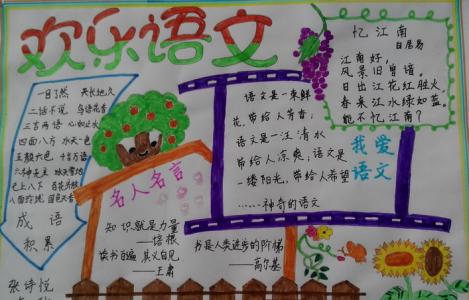 欢乐语文
一目了然 天长地久
二话不说 鸟语花香
三言两语 心如止水
四面八方 水天一色
五颜六色 十全十美
七上八下 百花齐放
成语
积累
张诗悦
名人名言
知识就是力量
——培根
读书百遍 其义自见
——王肃
书是人类进步的阶梯
——高尔基
语文是一束鲜
花,带给人芳香,
语文是一汪清水
带给人凉爽,语文是
一缕阳光,带给人希望
……神奇的语文
我爱
语文
忆江南
白居易
江南好,
风景旧曾谙。
日出江花红胜火
春来江水绿如蓝。
能不忆江南?